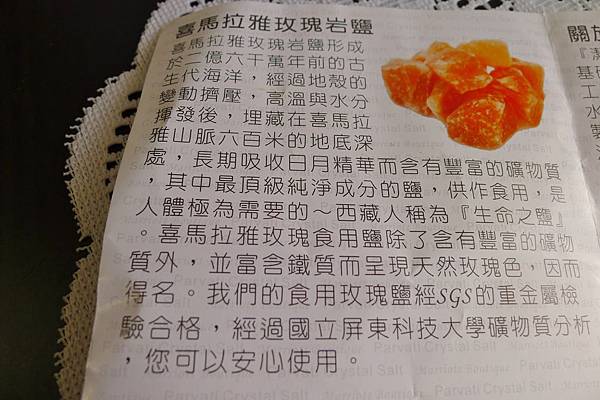 喜馬拉雅玫瑰岩鹽
喜馬拉雅玫瑰岩鹽形成
於二億六千萬年前的古
生代海洋，經過地殼的
變動擠壓，高溫與水分
揮發後，埋藏在喜馬拉
雅山脈六百米的地底深
處，長期吸收日月精華而含有豐富的礦物質
，其中最頂級純淨成分的鹽，供作食用，是
人體極為需要的～西藏人稱為『生命之鹽』
。喜馬拉雅玫瑰食用鹽除了含有豐富的礦物
質外，並富含鐵質而呈現天然玫瑰色，因而
得名。我們的食用玫瑰鹽經SGS的重金屬檢
驗合格，經過國立屏東科技大學礦物質分析
，您可以安心使用。
關於
『潔
基礎
工
水
製